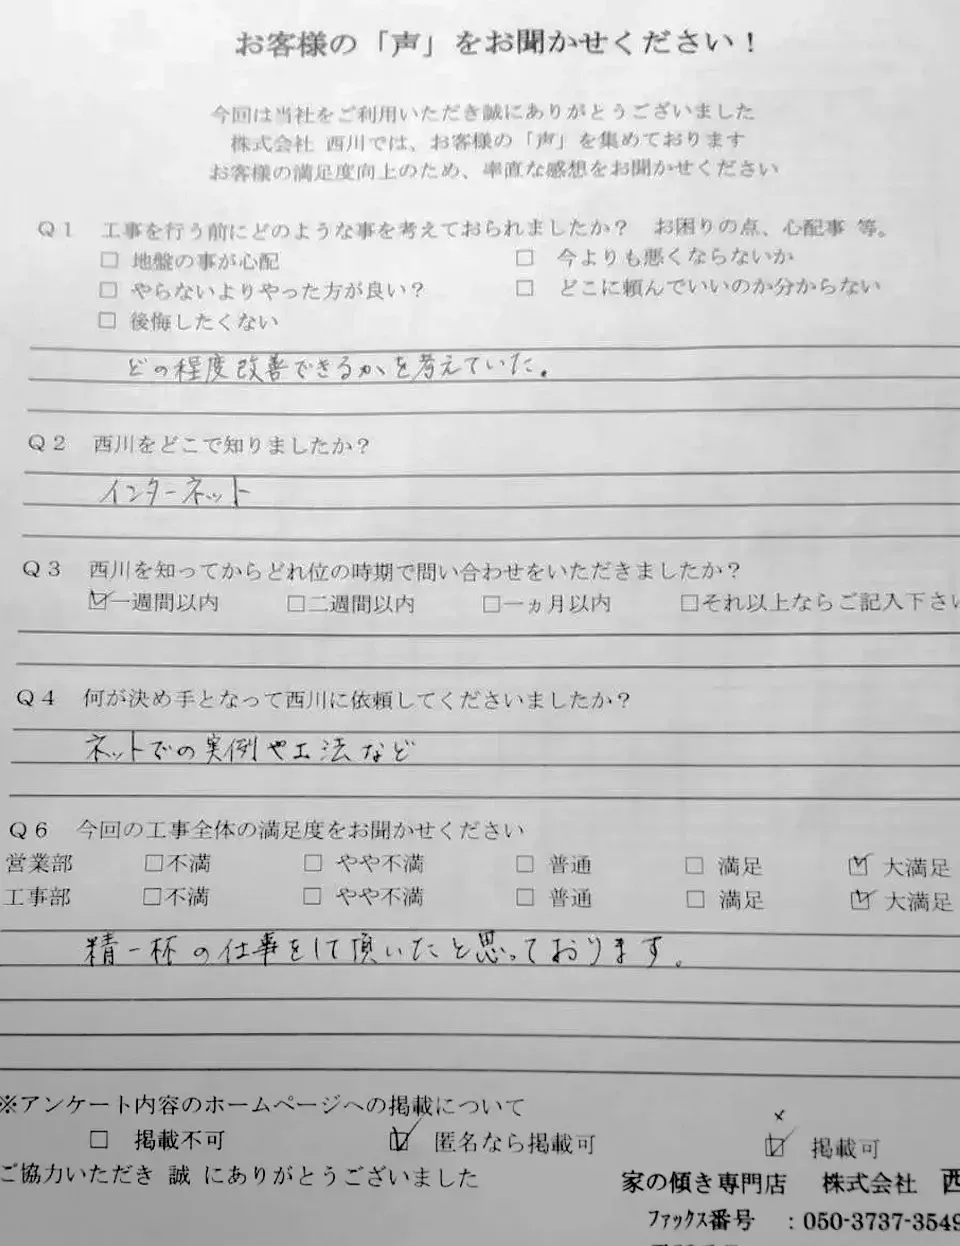 お客様の「声」をお聞かせください！
今回は当社をご利用いただき誠にありがとうございました
株式会社 西川では、お客様の「声」を集めております
お客様の満足度向上のため、率直な感想をお聞かせください
Q１ 工事を行う前にどのような事を考えておられましたか？ お困りの点、心配事 等。
□ 地盤の事が心配 □ 今よりも悪くならないか
□ やらないよりやった方が良い？ □ どこに頼んでいいのか分からない
□ 後悔したくない
どの程度改善できるかを考えていた。
Q２ 西川をどこで知りましたか？
インターネット
Q３ 西川を知ってからどれ位の時期で問い合わせをいただきましたか？
☑一週間以内 □二週間以内 □一ヵ月以内 □それ以上ならご記入下さい
Q４ 何が決め手となって西川に依頼してくださいましたか？
ネットでの実例や工法など
Q６ 今回の工事全体の満足度をお聞かせください
営業部 □不満 □ やや不満 □ 普通 □ 満足 ☑ 大満足
工事部 □不満 □ やや不満 □ 普通 □ 満足 ☑ 大満足
精一杯の仕事をして頂いたと思っております。
※アンケート内容のホームページへの掲載について
□ 掲載不可 ☑ 匿名なら掲載可 ☑ 掲載可
ご協力いただき 誠 にありがとうございました
家の傾き専門店 株式会社 西
ﾌｧｯｸｽ番号 ：050-3737-3549